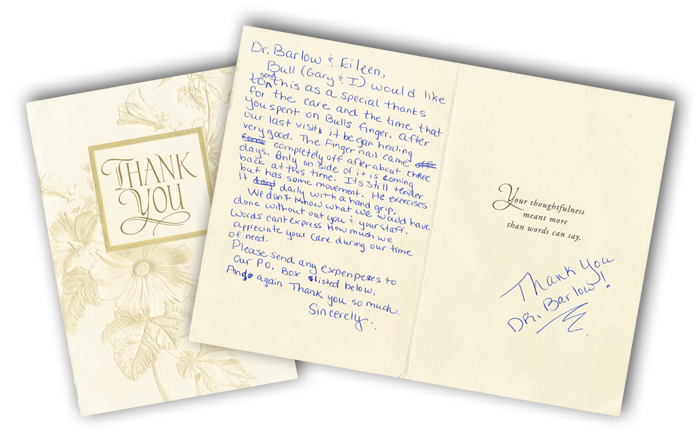 THANK
YOU
Dr. Barlow & Eileen,
Bull (Gary & I) would like
to send this as a special thanks
for the care and the time that
you spent on Bulls finger. After
our last visit, it began healing
very good. The finger nail came
completely off after about three
days. Only on side of it is coming
back at this time. Its still tender
but has some movement. He exercises
it daily with a hand grip.
We don't know what we would have
done without out you & your staff.
Words cant express how much we
appreciate your care during our time
of need.
Please send any expenpeses to
our P.O. Box listed below.
And again Thank you so much.
Sincerely.
Your thoughtfulness
meant more
than words can say.
Thank You
DR. Barlow!